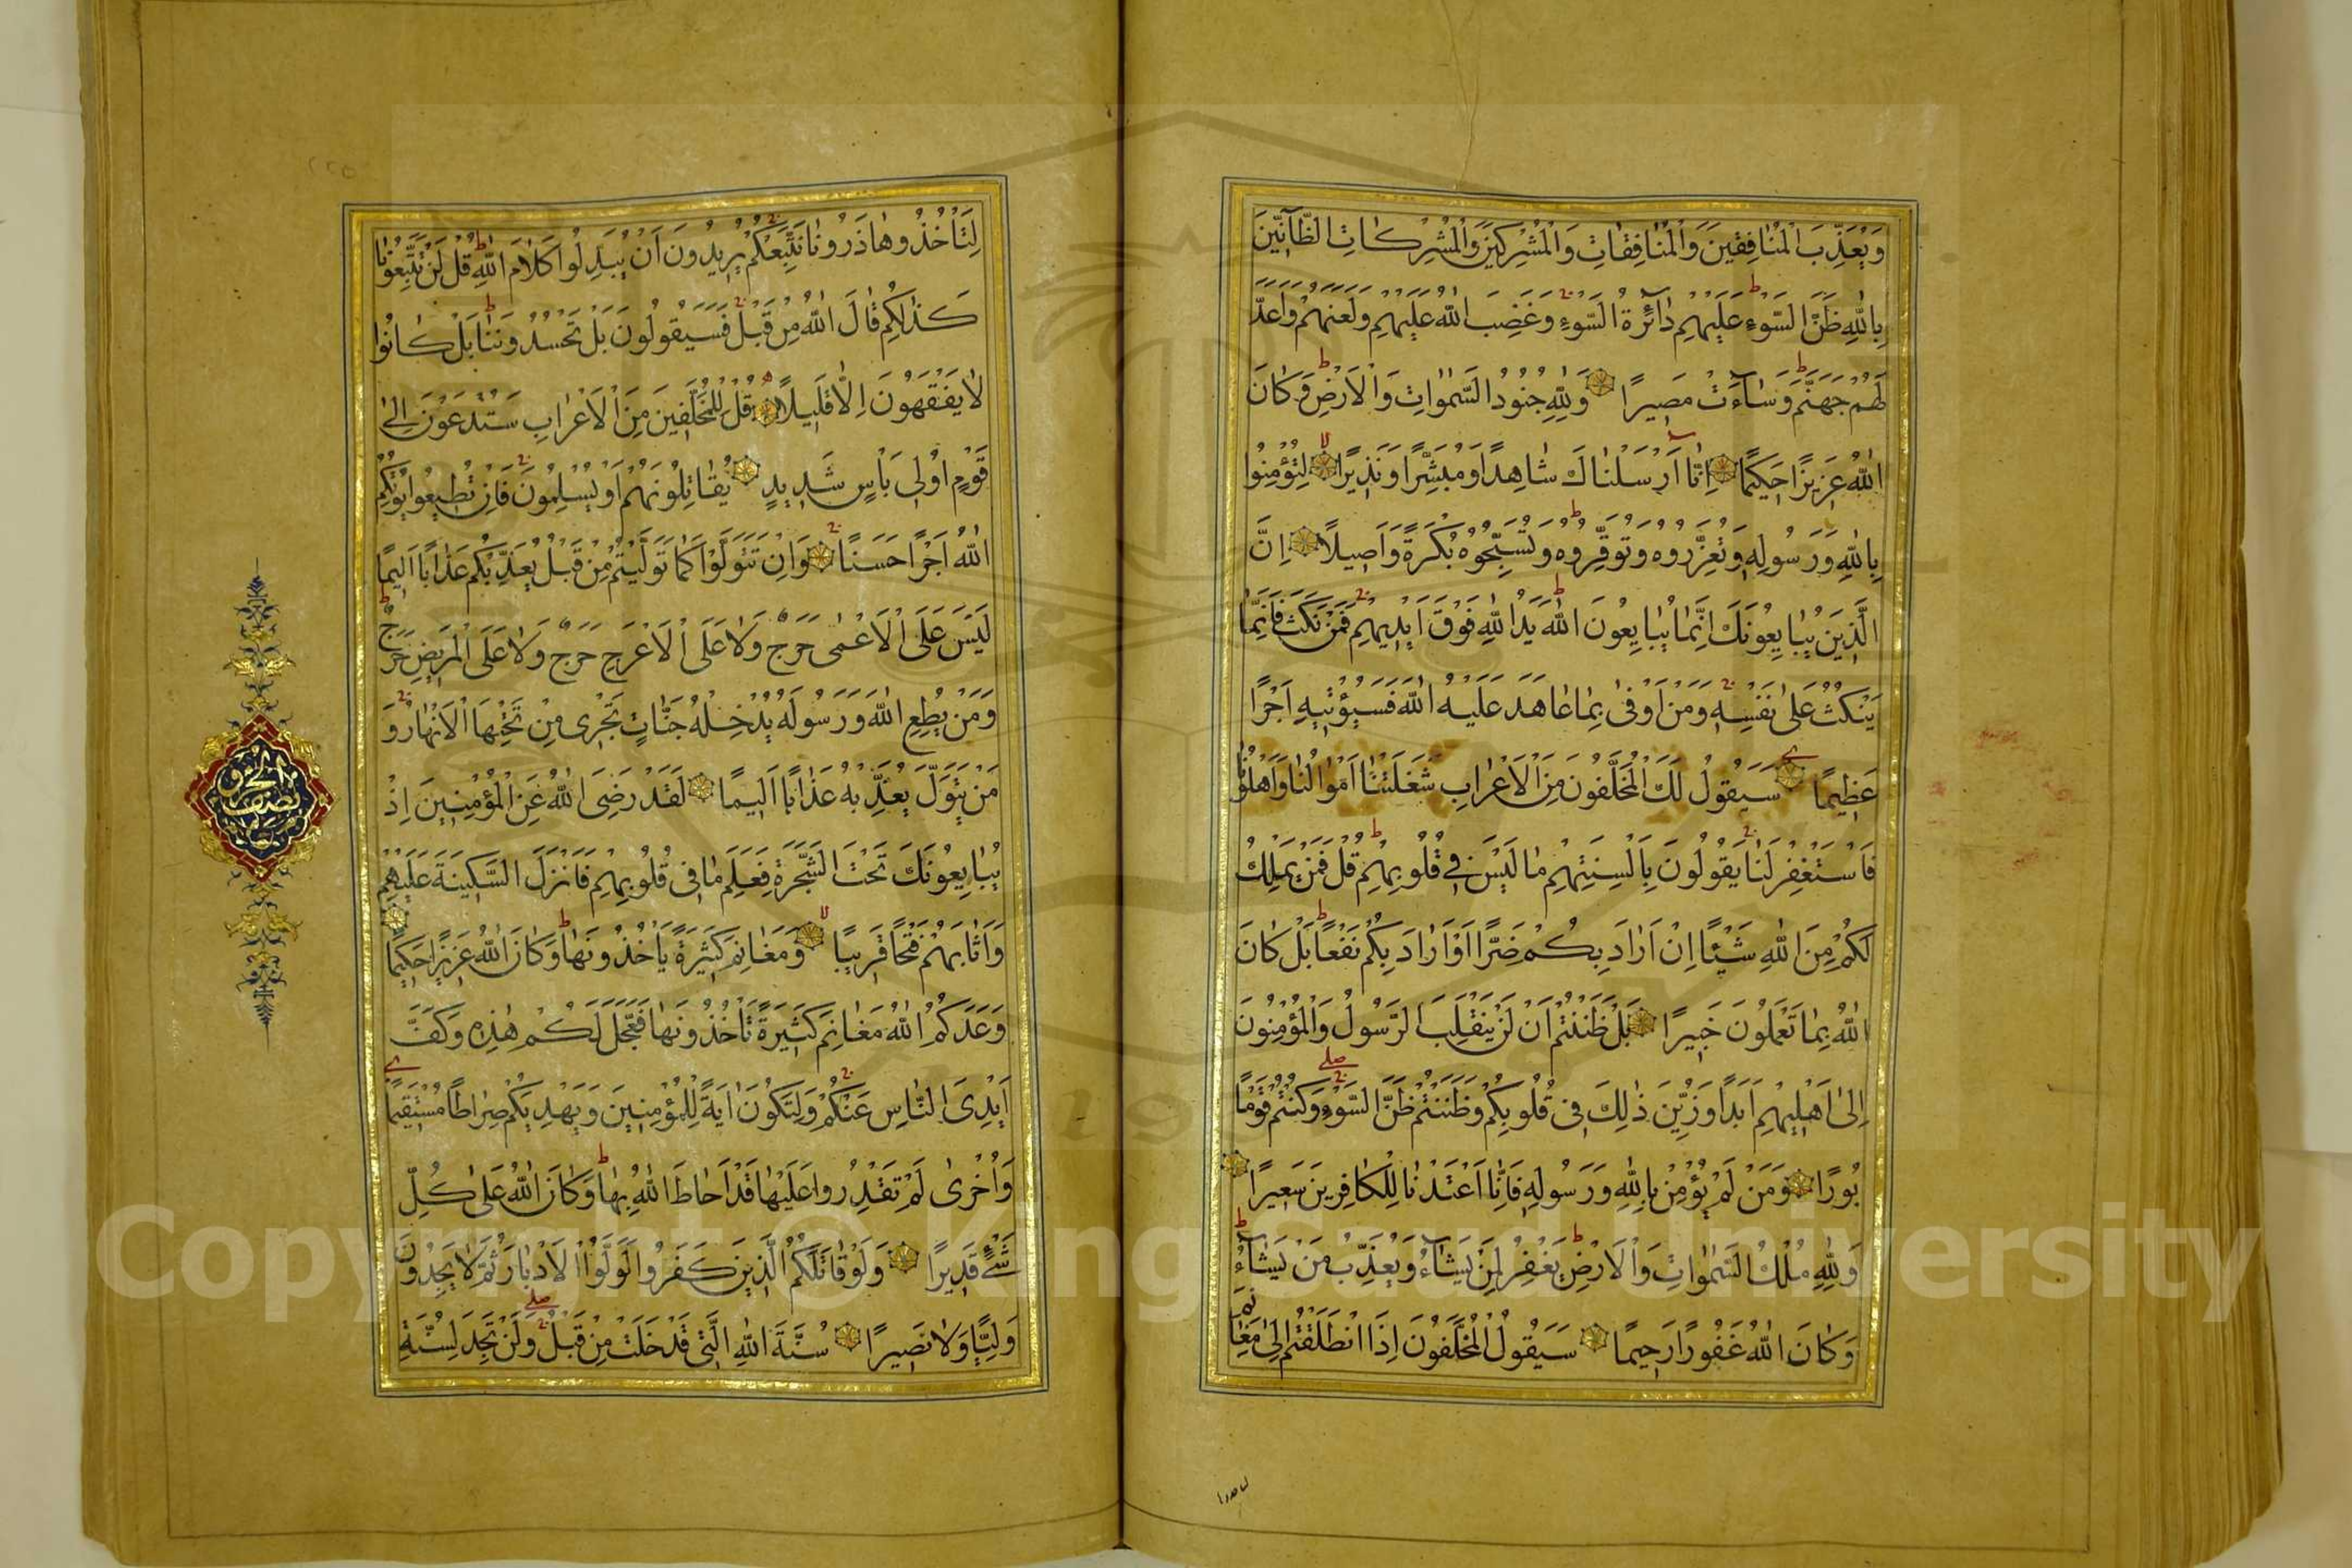 وَيُعَذِّبَ الْمُنَافِقِينَ وَالْمُنَافِقَاتِ وَالْمُشْرِكِينَ وَالْمُشْرِكَاتِ الظَّانِّينَ
بِاللّٰهِ ظَنَّ السَّوْءِ عَلَيْهِمْ دَائِرَةُ السَّوْءِ وَغَضِبَ اللّٰهُ عَلَيْهِمْ وَلَعَنَهُمْ وَاَعَدَّ
لَهُمْ جَهَنَّمَ وَسَاءَتْ مَصِيرًا وَلِلّٰهِ جُنُودُ السَّمٰوَاتِ وَالْاَرْضِ وَكَانَ
اللّٰهُ عَزِيزًا حَكِيمًا اِنَّا اَرْسَلْنَاكَ شَاهِدًا وَمُبَشِّرًا وَنَذِيرًا لِتُؤْمِنُوا
بِاللّٰهِ وَرَسُولِهِ وَتُعَزِّرُوهُ وَتُوَقِّرُوهُ وَتُسَبِّحُوهُ بُكْرَةً وَاَصِيلًا اِنَّ
الَّذِينَ يُبَايِعُونَكَ اِنَّمَا يُبَايِعُونَ اللّٰهَ يَدُ اللّٰهِ فَوْقَ اَيْدِيهِمْ فَمَنْ نَكَثَ فَاِنَّمَا
يَنْكُثُ عَلٰى نَفْسِهِ وَمَنْ اَوْفٰى بِمَا عَاهَدَ عَلَيْهُ اللّٰهَ فَسَيُؤْتِيهِ اَجْرًا
عَظِيمًا سَيَقُولُ لَكَ الْمُخَلَّفُونَ مِنَ الْاَعْرَابِ شَغَلَتْنَا اَمْوَالُنَا وَاَهْلُونَا
فَاسْتَغْفِرْ لَنَا يَقُولُونَ بِاَلْسِنَتِهِمْ مَا لَيْسَ فِي قُلُوبِهِمْ قُلْ فَمَنْ يَمْلِكُ
لَكُمْ مِنَ اللّٰهِ شَيْئًا اِنْ اَرَادَ بِكُمْ ضَرًّا اَوْ اَرَادَ بِكُمْ نَفْعًا بَلْ كَانَ
اللّٰهُ بِمَا تَعْمَلُونَ خَبِيرًا بَلْ ظَنَنْتُمْ اَنْ لَنْ يَنْقَلِبَ الرَّسُولُ وَالْمُؤْمِنُونَ
اِلٰى اَهْلِيهِمْ اَبَدًا وَزُيِّنَ ذٰلِكَ فِي قُلُوبِكُمْ وَظَنَنْتُمْ ظَنَّ السَّوْءِ وَكُنْتُمْ قَوْمًا
بُورًا وَمَنْ لَمْ يُؤْمِنْ بِاللّٰهِ وَرَسُولِهِ فَاِنَّا اَعْتَدْنَا لِلْكَافِرِينَ سَعِيرًا
وَلِلّٰهِ مُلْكُ السَّمٰوَاتِ وَالْاَرْضِ يَغْفِرُ لِمَنْ يَشَاءُ وَيُعَذِّبُ مَنْ يَشَاءُ
وَكَانَ اللّٰهُ غَفُورًا رَحِيمًا سَيَقُولُ الْمُخَلَّفُونَ اِذَا انْطَلَقْتُمْ اِلٰى مَغَانِمَ
لِتَأْخُذُوهَا ذَرُونَا نَتَّبِعْكُمْ يُرِيدُونَ اَنْ يُبَدِّلُوا كَلَامَ اللّٰهِ قُلْ لَنْ تَتَّبِعُونَا
كَذٰلِكُمْ قَالَ اللّٰهُ مِنْ قَبْلُ فَسَيَقُولُونَ بَلْ تَحْسُدُونَنَا بَلْ كَانُوا
لَا يَفْقَهُونَ اِلَّا قَلِيلًا قُلْ لِلْمُخَلَّفِينَ مِنَ الْاَعْرَابِ سَتُدْعَوْنَ اِلٰى
قَوْمٍ اُولِي بَأْسٍ شَدِيدٍ تُقَاتِلُونَهُمْ اَوْ يُسْلِمُونَ فَاِنْ تُطِيعُوا يُؤْتِكُمُ
اللّٰهُ اَجْرًا حَسَنًا وَاِنْ تَتَوَلَّوْا كَمَا تَوَلَّيْتُمْ مِنْ قَبْلُ يُعَذِّبْكُمْ عَذَابًا اَلِيمًا
لَيْسَ عَلَى الْاَعْمٰى حَرَجٌ وَلَا عَلَى الْاَعْرَجِ حَرَجٌ وَلَا عَلَى الْمَرِيضِ حَرَجٌ
وَمَنْ يُطِعِ اللّٰهَ وَرَسُولَهُ يُدْخِلْهُ جَنَّاتٍ تَجْرِي مِنْ تَحْتِهَا الْاَنْهَارُ وَ
مَنْ يَتَوَلَّ يُعَذِّبْهُ عَذَابًا اَلِيمًا لَقَدْ رَضِيَ اللّٰهُ عَنِ الْمُؤْمِنِينَ اِذْ
يُبَايِعُونَكَ تَحْتَ الشَّجَرَةِ فَعَلِمَ مَا فِي قُلُوبِهِمْ فَاَنْزَلَ السَّكِينَةَ عَلَيْهِمْ
وَاَثَابَهُمْ فَتْحًا قَرِيبًا وَمَغَانِمَ كَثِيرَةً يَأْخُذُونَهَا وَكَانَ اللّٰهُ عَزِيزًا حَكِيمًا
وَعَدَكُمُ اللّٰهُ مَغَانِمَ كَثِيرَةً تَأْخُذُونَهَا فَعَجَّلَ لَكُمْ هٰذِهِ وَكَفَّ
اَيْدِيَ النَّاسِ عَنْكُمْ وَلِتَكُونَ اٰيَةً لِلْمُؤْمِنِينَ وَيَهْدِيَكُمْ صِرَاطًا مُسْتَقِيمًا
وَاُخْرٰى لَمْ تَقْدِرُوا عَلَيْهَا قَدْ اَحَاطَ اللّٰهُ بِهَا وَكَانَ اللّٰهُ عَلٰى كُلِّ
شَيْءٍ قَدِيرًا وَلَوْ قَاتَلَكُمُ الَّذِينَ كَفَرُوا لَوَلَّوُا الْاَدْبَارَ ثُمَّ لَا يَجِدُونَ
وَلِيًّا وَلَا نَصِيرًا سُنَّةَ اللّٰهِ الَّتِي قَدْ خَلَتْ مِنْ قَبْلُ وَلَنْ تَجِدَ لِسُنَّةِ
Copyright © King Saud University